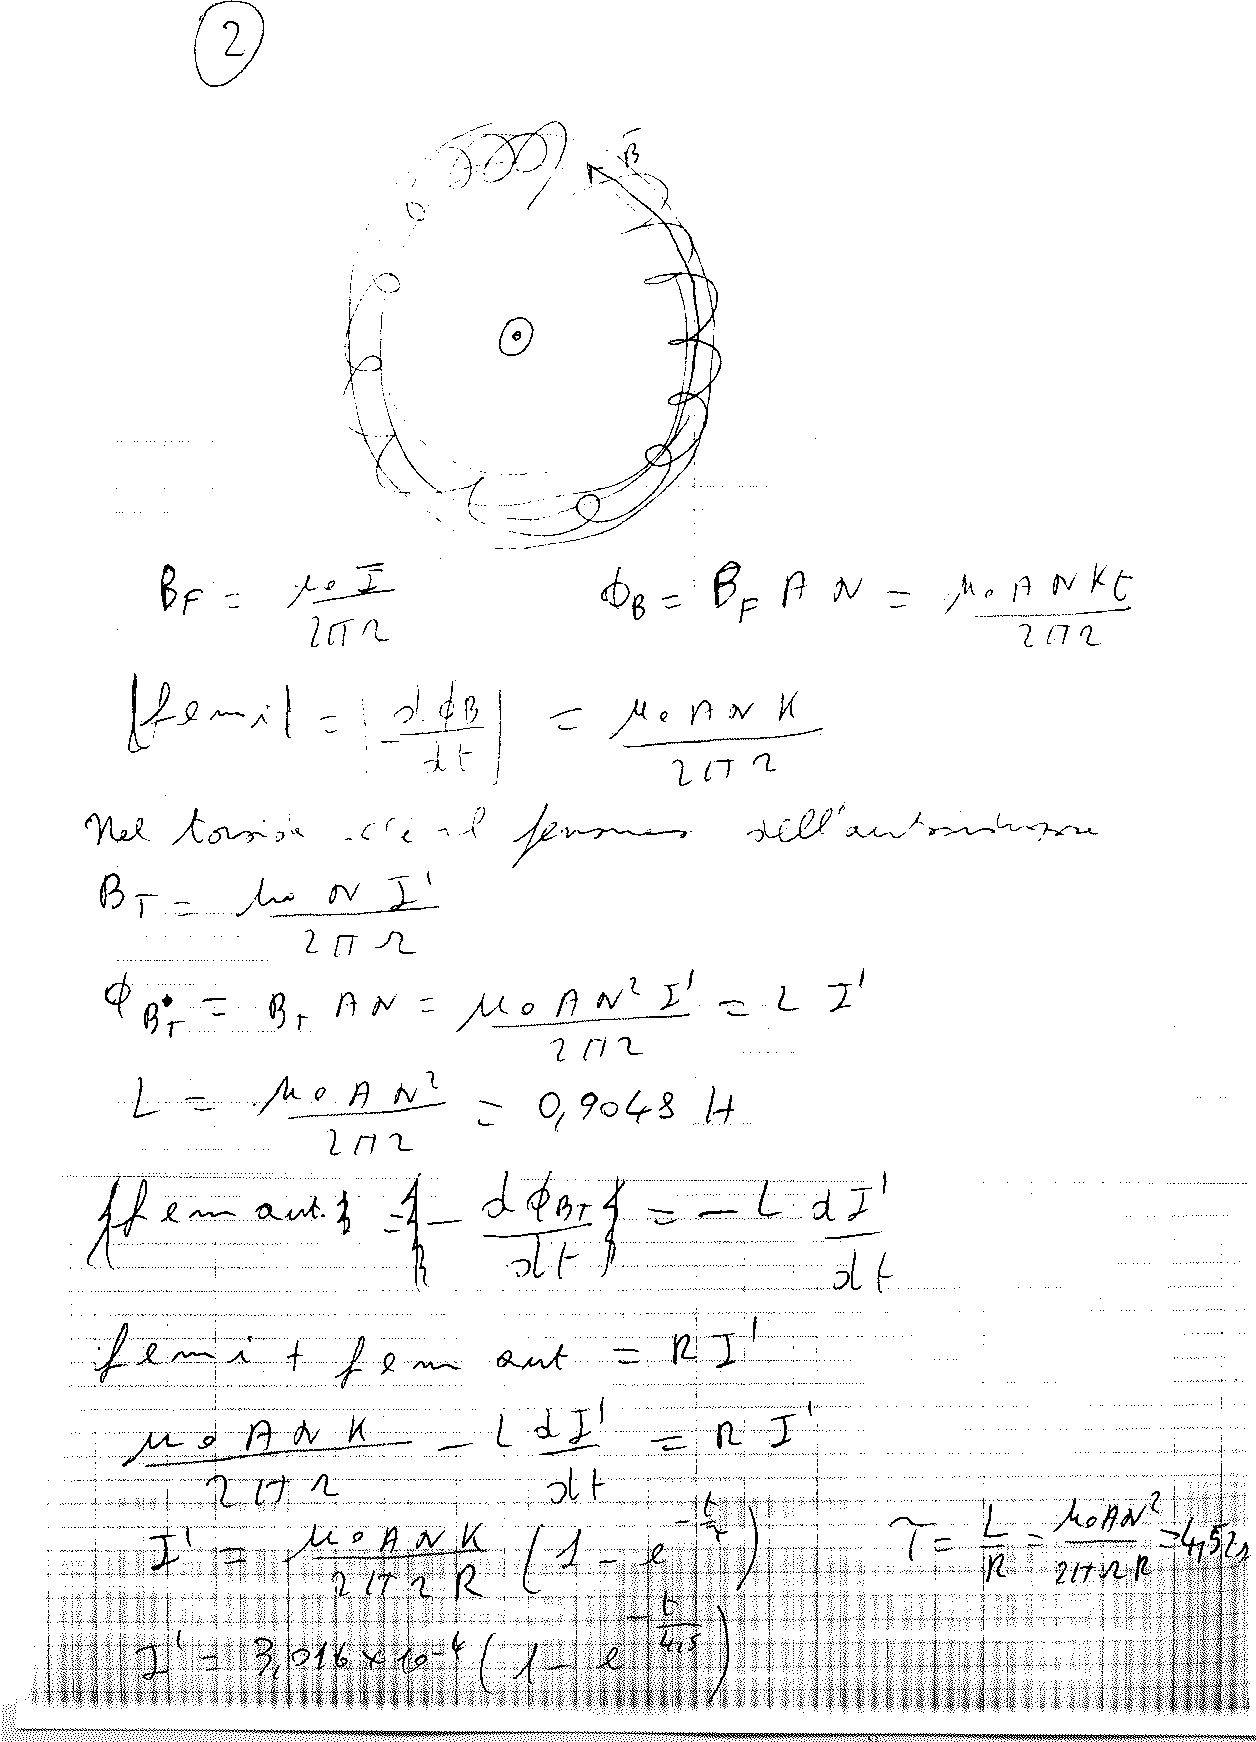 2
B
B_F = μ₀ I / 2πr    Φ_B = B_F A N = μ₀ A N K t / 2πr
|fem i| = |dΦ_B / dt| = μ₀ A N K / 2πr
Nel toroide c'è il fenomeno dell'autoinduzione
B_T = μ₀ N I' / 2πr
Φ_{B_T} = B_T A N = μ₀ A N² I' / 2πr = L I'
L = μ₀ A N² / 2πr = 0,9048 H
fem aut. = - dΦ_{BT} / dt = - L dI' / dt
fem i + fem aut = R I'
μ₀ A N K / 2πr - L dI' / dt = R I'
I' = μ₀ A N K / 2πrR (1 - e^{-t/τ})    τ = L / R = μ₀ A N² / 2πrR = 4,52 s
I' = 3,016 × 10⁻⁴ (1 - e^{-t/4,5})